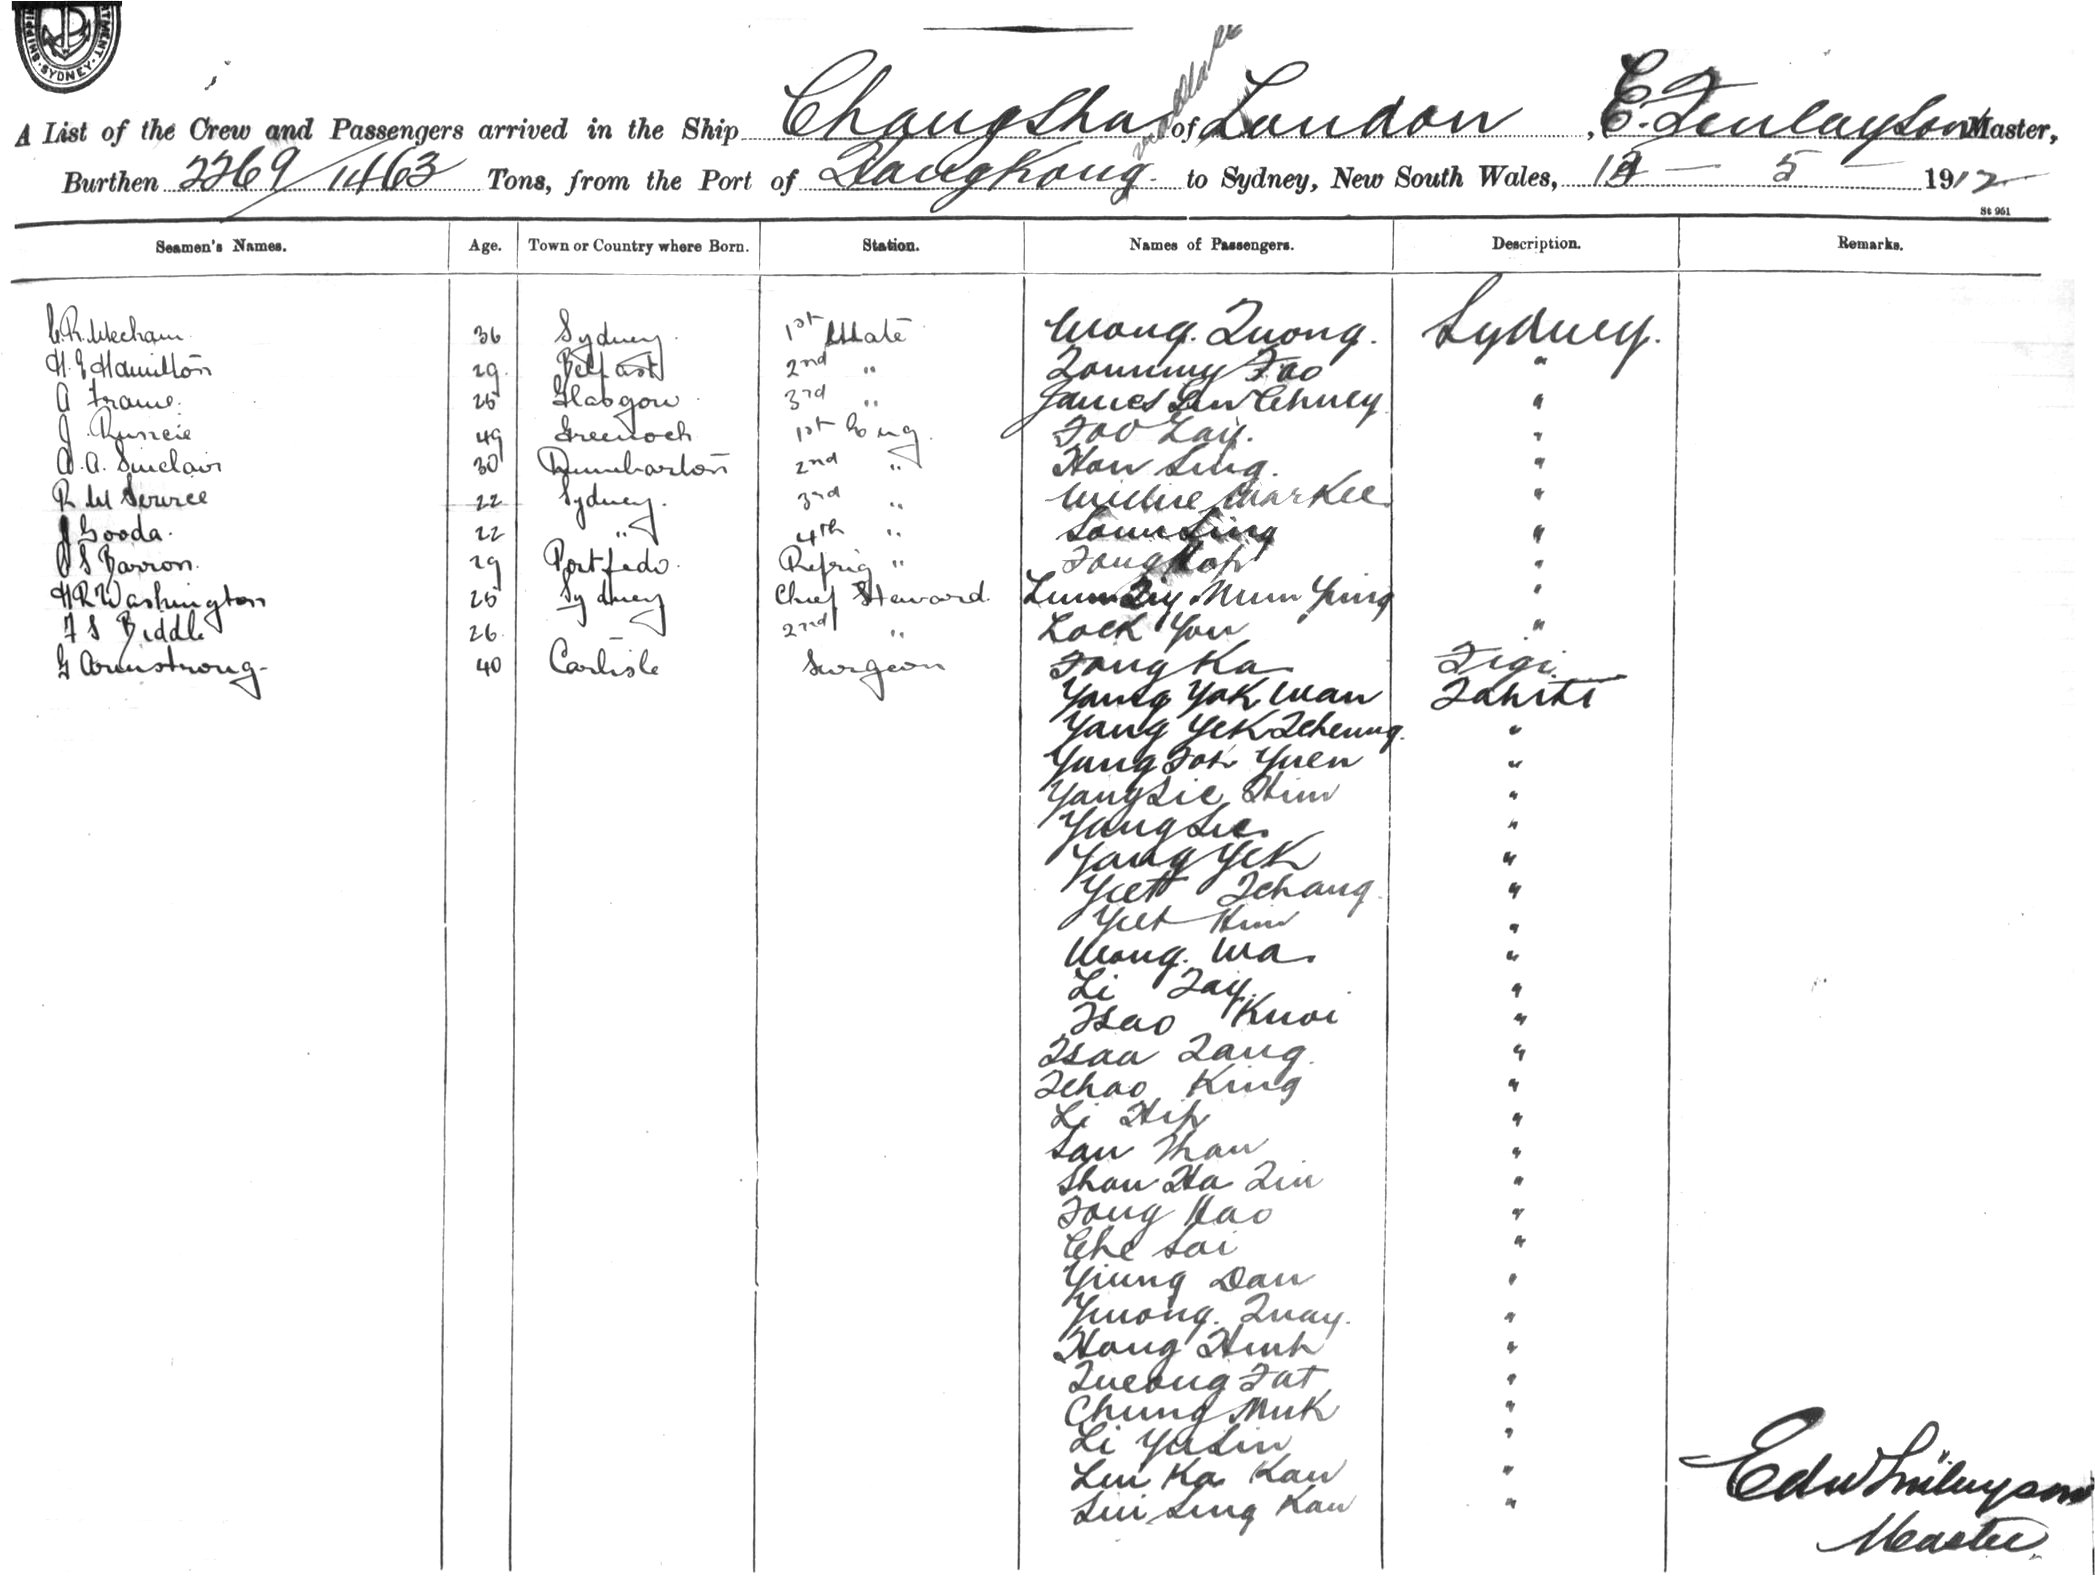 SHIPPING SYDNEY
A List of the Crew and Passengers arrived in the Ship ChangSha of London, E. Finlayson Master,
Burthen 2269/1463 Tons, from the Port of HongKong to Sydney, New South Wales, - 5 - 1912
St 951
Seamen's Names. Age. Town or Country where Born. Station. Names of Passengers. Description. Remarks.
C.R. Mecham 36 Sydney. 1st Mate Wong. Quong. Sydney.
H. G Hamilton 29. Belfast 2nd " Tommy Foo "
A Frame. 25 Glasgow 3rd " James Lew Chuey "
J. Runcie 49 Greenock 1st Eng. Foo Lay. "
A. A. Sinclair 30 Dumbarton 2nd " Hon Sing. "
R W Service 22 Sydney. 3rd " Willie Mar Kee "
J Gooda. 22 " 4th " Sam Sing "
S Barron. 29 Refrig " Fong Hop "
H R Washington 25 Sydney Chief Steward. Mum Ying "
F S Biddle 26. 2nd " Lock You "
G Armstrong 40 Carlisle Surgeon Fong Ka Figi.
Yang Yok Wan Tahiti
Yang Yek Tcheung. "
Yang Foh Yuen "
Yang Sie Him "
Yang Sie. "
Yang Yek "
Yiett Tchang. "
Yiet Him "
Wong. Wa. "
Li Tay. "
Tsao Kuoi "
Tsaa Tang. "
Tchao King "
Li Hip "
San Than "
Shan Ha Tin "
Fong Hao "
Che Soi "
Yiung Dan "
Ymong. Quay. "
Hong Hinh "
Queong Fat "
Chung Muk "
Li Yu Lin "
Lui Ka Kau "
Lui Sing Kau "
Edw Finlayson
Master.